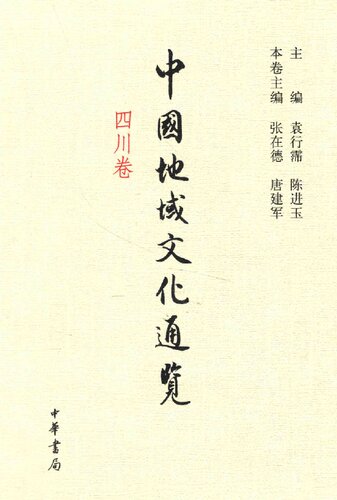 主编 袁行霈 陈进玉
本卷主编 张在德 唐建军
中國地域文化通覽
四川卷
中華書局